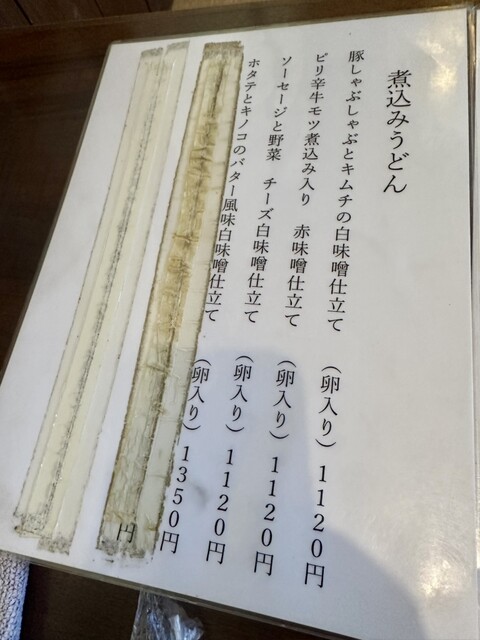 煮込みうどん
豚しゃぶしゃぶとキムチの白味噌仕立て (卵入り) 1120円
ピリ辛牛モツ煮込み入り 赤味噌仕立て (卵入り) 1120円
ソーセージと野菜 チーズ白味噌仕立て (卵入り) 1120円
ホタテとキノコのバター風味白味噌仕立て (卵入り) 1350円
円